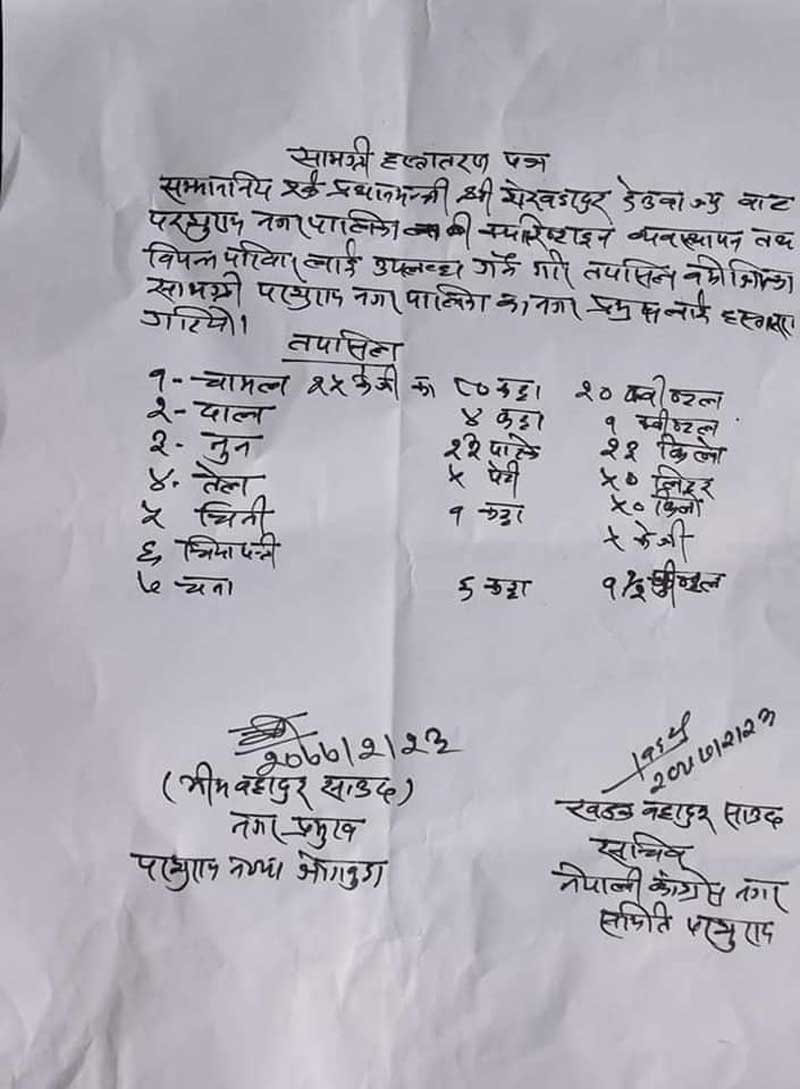 सामग्री हस्तान्तरण पत्र
सम्माननिय पूर्व प्रधानमन्त्री श्री शेरबहादुर देउवा ज्यु बाट
परशुराम नगरपालिका को क्वारेन्टाइन व्यवस्थापन तथा
विपन्न परिवार लाई उपलब्ध गर्ने गरि तपासिल बमोजिमका
सामग्री परशुराम नगरपालिका का नगर प्रमुख लाई हस्तान्तरण
गरियो।
तपासिल
१- चामल २५ केजी का ८० कट्टा २० क्वीन्टल
२- दाल ४ कट्टा १ क्वीन्टल
३- नुन २२ पाके २२ किलो
४. तेल ५ पेटी ५० लिटर
५ चिनी १ कट्टा ५० किलो
६ चियापत्ती ५ केजी
७ चना ६ कट्टा १ १/२ क्वीन्टल
२०७७/२/२३
(भीम बहादुर साउद)
नगर प्रमुख
परशुराम न.पा. जोगबुडा
२०७७/२/२३
खडक बहादुर साउद
सचिव
नेपाली कांग्रेस नगर
समिति परशुराम